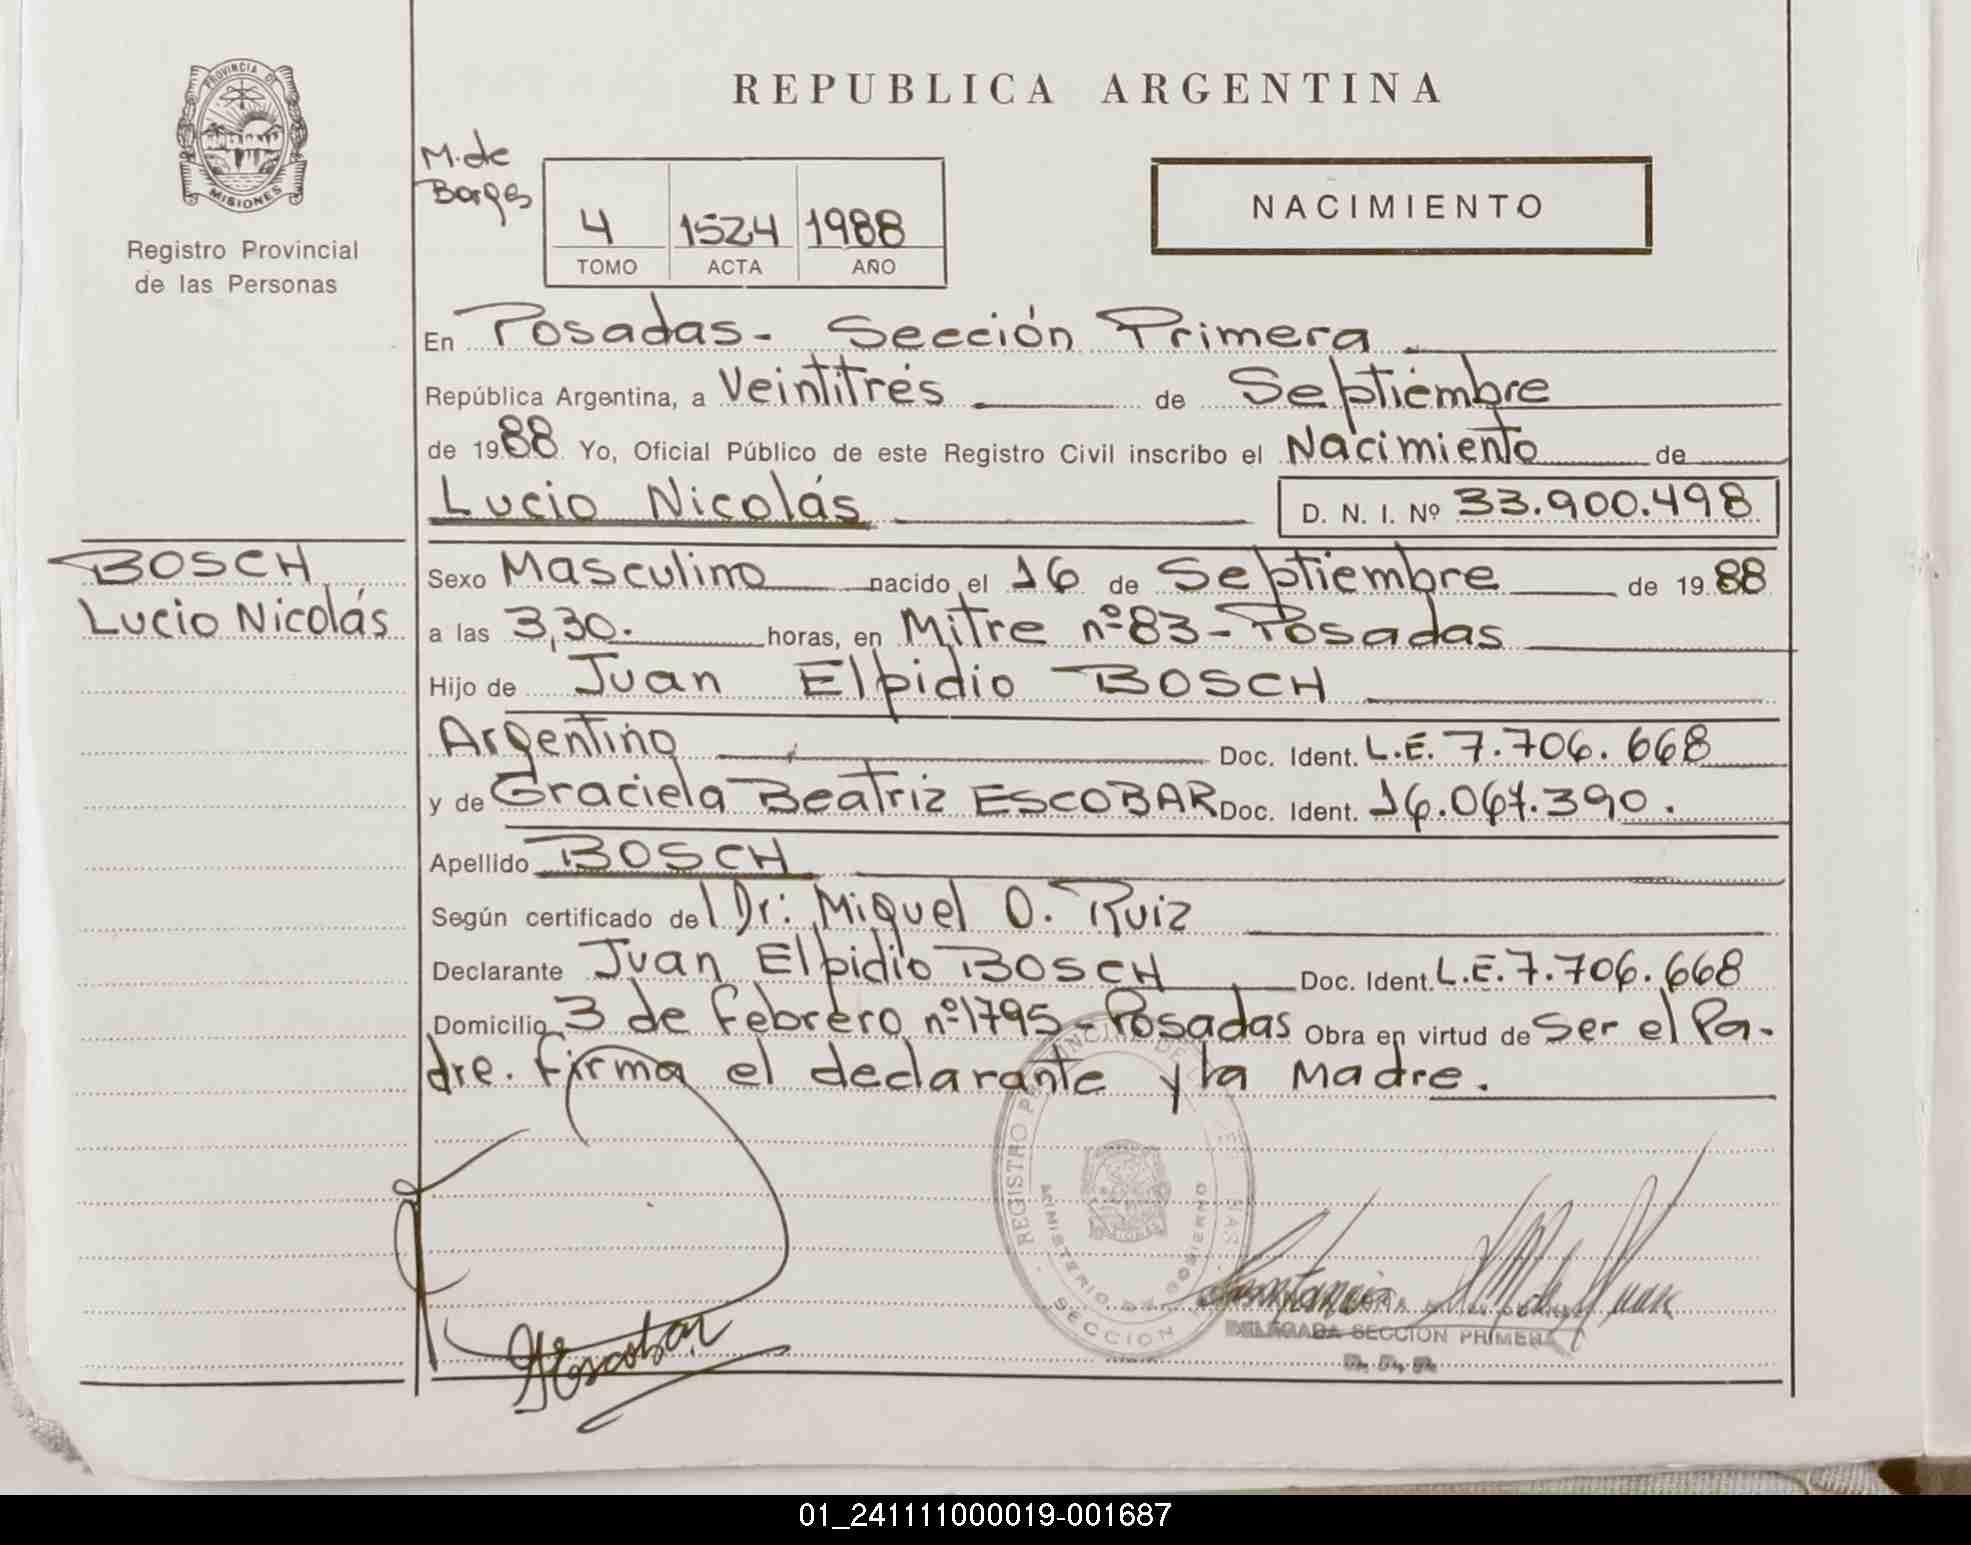 PROVINCIA DE
MISIONES
Registro Provincial
de las Personas
REPUBLICA ARGENTINA
M. de
Borges
4 1524 1988
TOMO ACTA AÑO
NACIMIENTO
En Posadas - Sección Primera
República Argentina, a Veintitrés de Septiembre
de 1988 Yo, Oficial Público de este Registro Civil inscribo el Nacimiento de
Lucio Nicolás D. N. I. Nº 33.900.498
BOSCH
Lucio Nicolás
Sexo Masculino nacido el 16 de Septiembre de 1988
a las 3,30. horas, en Mitre nº 83 - Posadas
Hijo de Juan Elpidio BOSCH
Argentino Doc. Ident. L.E. 7.706.668
y de Graciela Beatriz ESCOBAR Doc. Ident. .390.
Apellido BOSCH
Según certificado del Dr: Miguel O. Ruiz
Declarante Juan Elpidio BOSCH Doc. Ident. L.E. 7.706.668
Domicilio 3 de febrero nº 1795 - Posadas Obra en virtud de Ser el Pa-
dre. firma el declarante y la Madre.
REGISTRO
MINISTERIO DE GOBIERNO
SECCION
Escobar
DELEGADA SECCION PRIMERA
01_241111000019-001687